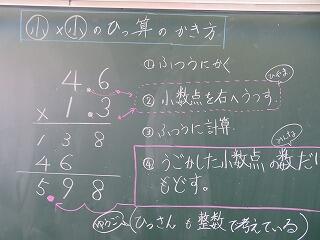 小×小のひっ算のかき方
4.6
×1.3
138
46
5.98
①ふつうにかく
②小数点を右へうつす。
③ふつうに計算。
④うごかした小数点の数だけ
もどす。
ひっさんも整数で考えている)